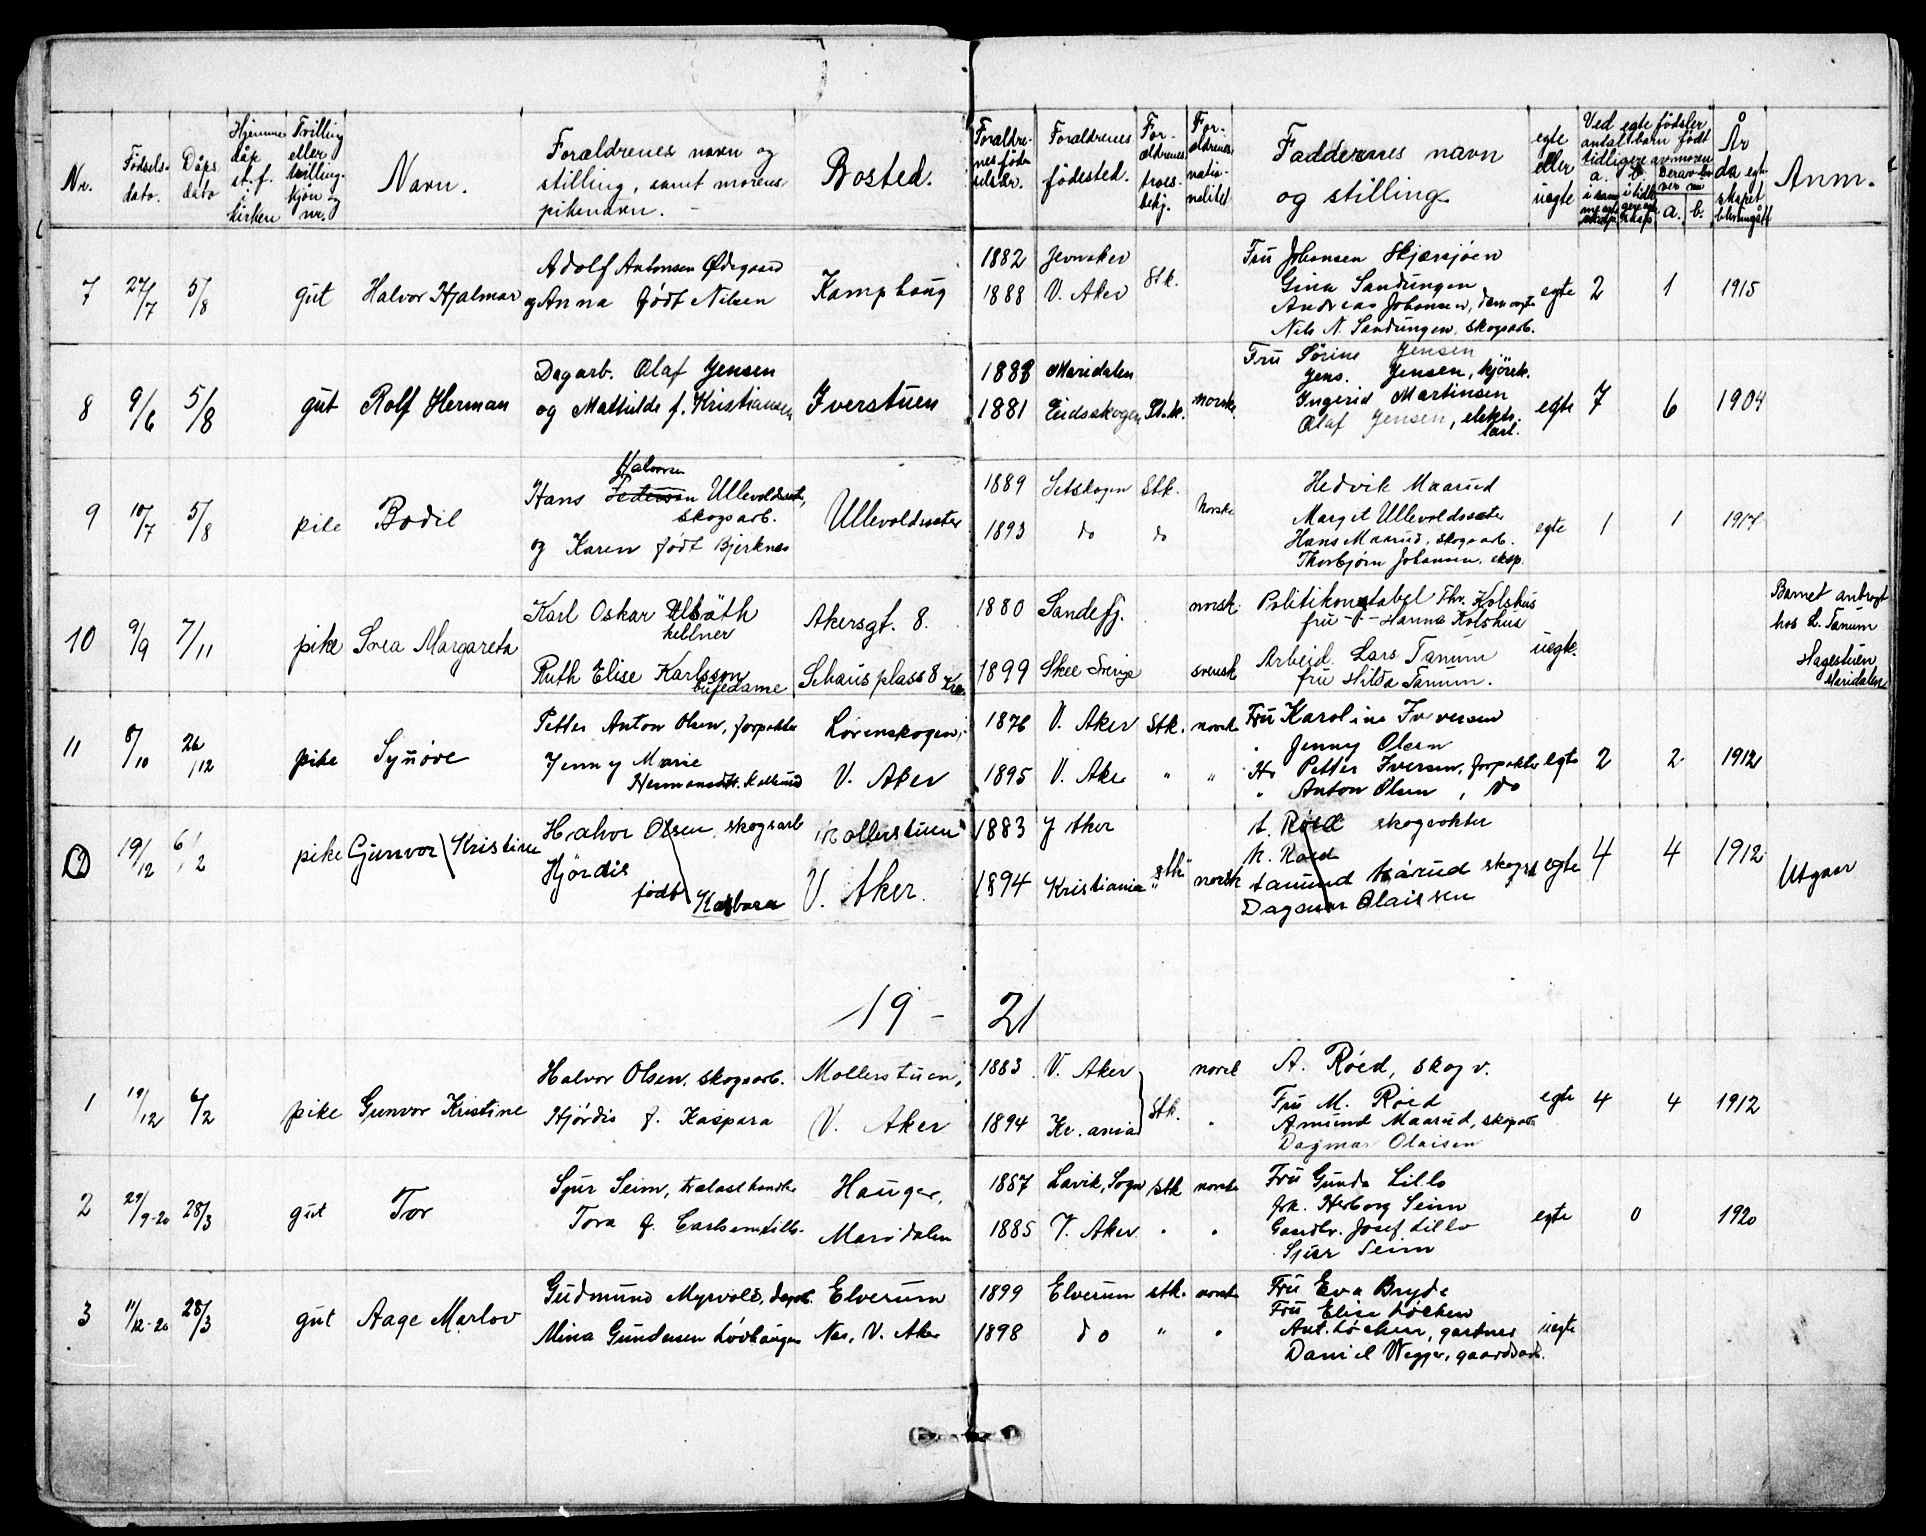 Nr. Fødsels- dato. Dåps dato Hjemme dåp st. f. i kirken Tvilling eller trilling. kjøn og nr. Navn. Forældrenes navn og stilling, samt morens pikenavn. Bosted. Forældrenes føde- sted. Forældrenes fødested. For- ældrenes troes- bekj. For- ældrenes natio- nalitet Faddernes navn og stilling egte eller uegte Ved egte fødsler antal barn født tidligere av moren a. b. a. b. År da egte- skapet blev indgått Anm.
7 27/7 5/8 gut Halvor Hjalmar Adolf Antonsen Ødegaard
og Anna født Nilsen Kamphaug
1882 Jevnaker
1888 V. Aker Stk.
Fru Johansen Skjærsjøen
Gina Sandungen
Andreas Johansen, damvogte
Nils N. Sandungen, skogsarb.
egte 2 1 1915
8 9/6 5/8 gut Rolf Herman Dagarb. Olaf Jensen
og Mathilde f. Kristiansen Iverstuen
1888 Maridalen
1881 Eidsskogen St.k. norske
Fru Sørine Jensen
Jens. Jensen, kjørek.
Ingerid Martinsen
Olaf Jensen, elektr. lærl.
egte 7 6 1904
9 10/7 5/8 pike Bodil Halvorsen
Hans Pedersen Ullevoldsæt,
skogsarb.
og Karen født Bjerknes Ullevoldsæter
1889 Setskogen Stk.
1893 do do Norske
Hedvik Maarud
Margit Ullevoldssæter
Hans Maarud, skogsarb.
Thorbjørn Johansen, eksp.
egte 1 1 1917
10 9/9 7/11 pike Svea Margareta Karl Oskar Elsäth
kellner
Ruth Elise Karlsson
bufedame
Akersgt. 8.
Schausplass 8 Kra.
1880 Sandefj. norsk.
1899 Skee Sverige svensk
Politikonstabel Thv. Kolshus
fru -"- Hanna Kolshus
Arbeid. Lars Tanum
fru Hilda Tanum.
uegte.
Barnet antragt
hos L. Tanum
Hagestuen
Maridalen
11 8/10 26/12 pike Synøve Petter Anton Olsen, forpakter
Jenny Marie
Hermansdtr. Kallerud
Lørenskogen,
V. Aker
1876 V. Aker Stk. norsk
1895 V. Aker " "
Fru Karoline Iversen
" Jenny Olsen
Hr Petter Iversen, forpakter
" Anton Olsen, do
egte 2 2 1912
12 19/12 6/2 pike Gunvor Kristine Halvor Olsen, skogsarb
Hjördis
født Kasbara
Mollerstuen
V. Aker.
1883 V Aker
1894 Kristiania stk. norsk
A. Røed skogvokter
M. Røed
Amund Mårud skogsa
Dagmar Olaissen
egte 4 4 1912 Utgaar
19 - 21
1 19/12 6/2 pike Gunvor Kristine Halvor Olsen, skogsarb.
Hjørdis f. Kaspara
Mollerstuen,
V. Aker
1883 V. Aker norsk
1894 Kr.ania Stk. "
A. Røed, skogv.
Fru M. Røed
Amund Maarud, skogsarb
Dagmar Olaisen
egte 4 4 1912
2 29/9-20 28/3 gut Tor Sjur Seim, trælasthandler
Tora f. Carlsen Lillo.
Hauger,
Maridalen
1887 Lavik, Sogn stk norske
1885 V. Aker " "
Fru Gunda Lillo
frk. Herborg Seim
Gaardbr. Josef Lillo
Sjur Seim
egte 0 1920
3 11/12-20 28/3 gut Aage Marlov Gudmund Myrvold, dagarb.
Mina Gundersen Løvhaugen
Elverum
Nes, V. Aker
1899 Elverum stk. norske
1898 do " "
Fru Eva Bryde
Fru Elise Løcken
Ant. Løcken, gartner
Daniel Wegger, gaardsarb.
uegte